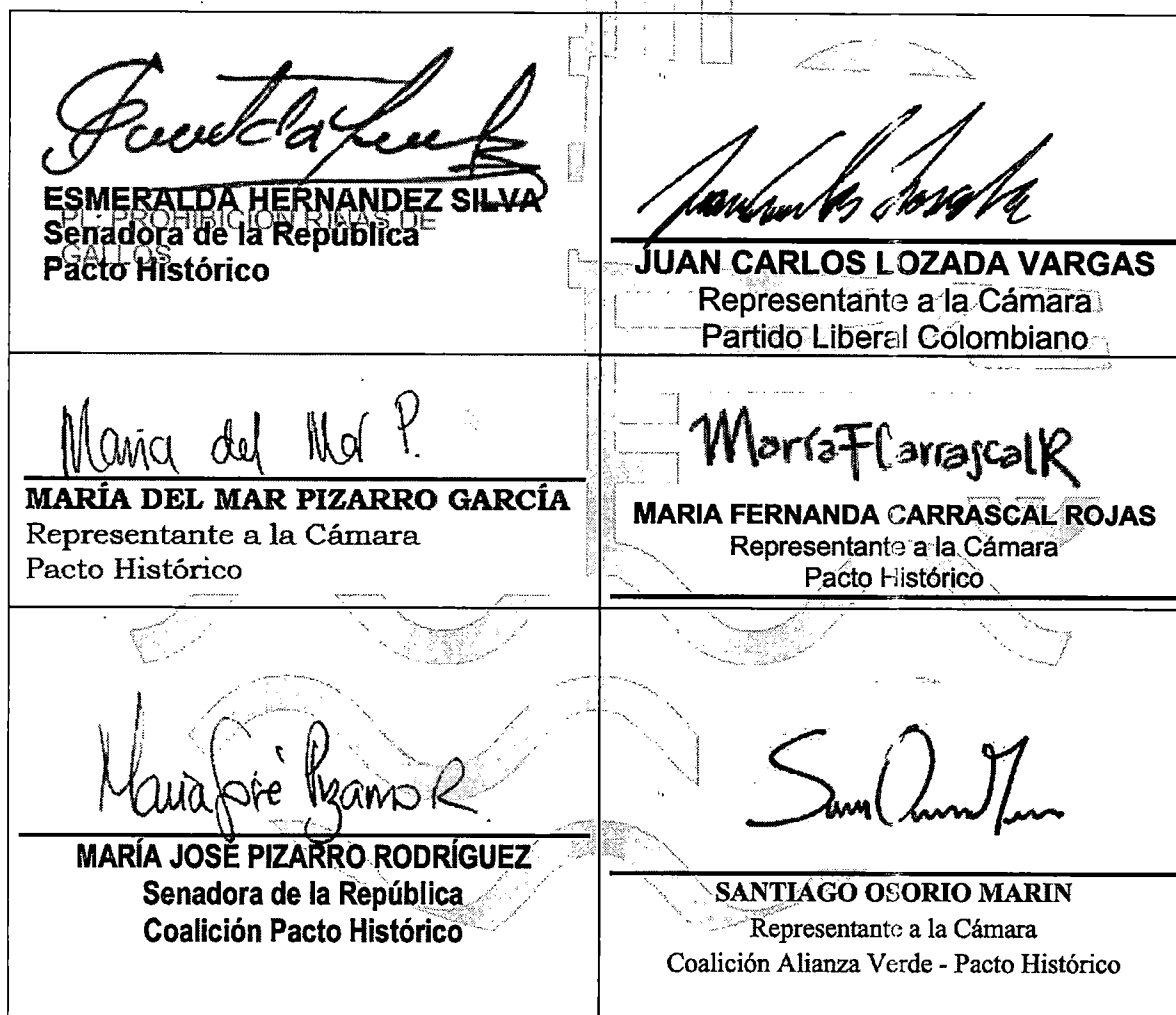 ESMERALDA HERNANDEZ SILVA
PL: PROHIBICION RIÑAS DE
Senadora de la República
GALLOS
Pacto Histórico
JUAN CARLOS LOZADA VARGAS
Representante a la Cámara
Partido Liberal Colombiano
Maria del Mar P.
MARÍA DEL MAR PIZARRO GARCÍA
Representante a la Cámara
Pacto Histórico
MaríaFCarrascalR
MARIA FERNANDA CARRASCAL ROJAS
Representante a la Cámara
Pacto Histórico
María José Pizarro R.
MARÍA JOSÉ PIZARRO RODRÍGUEZ
Senadora de la República
Coalición Pacto Histórico
SANTIAGO OSORIO MARIN
Representante a la Cámara
Coalición Alianza Verde - Pacto Histórico